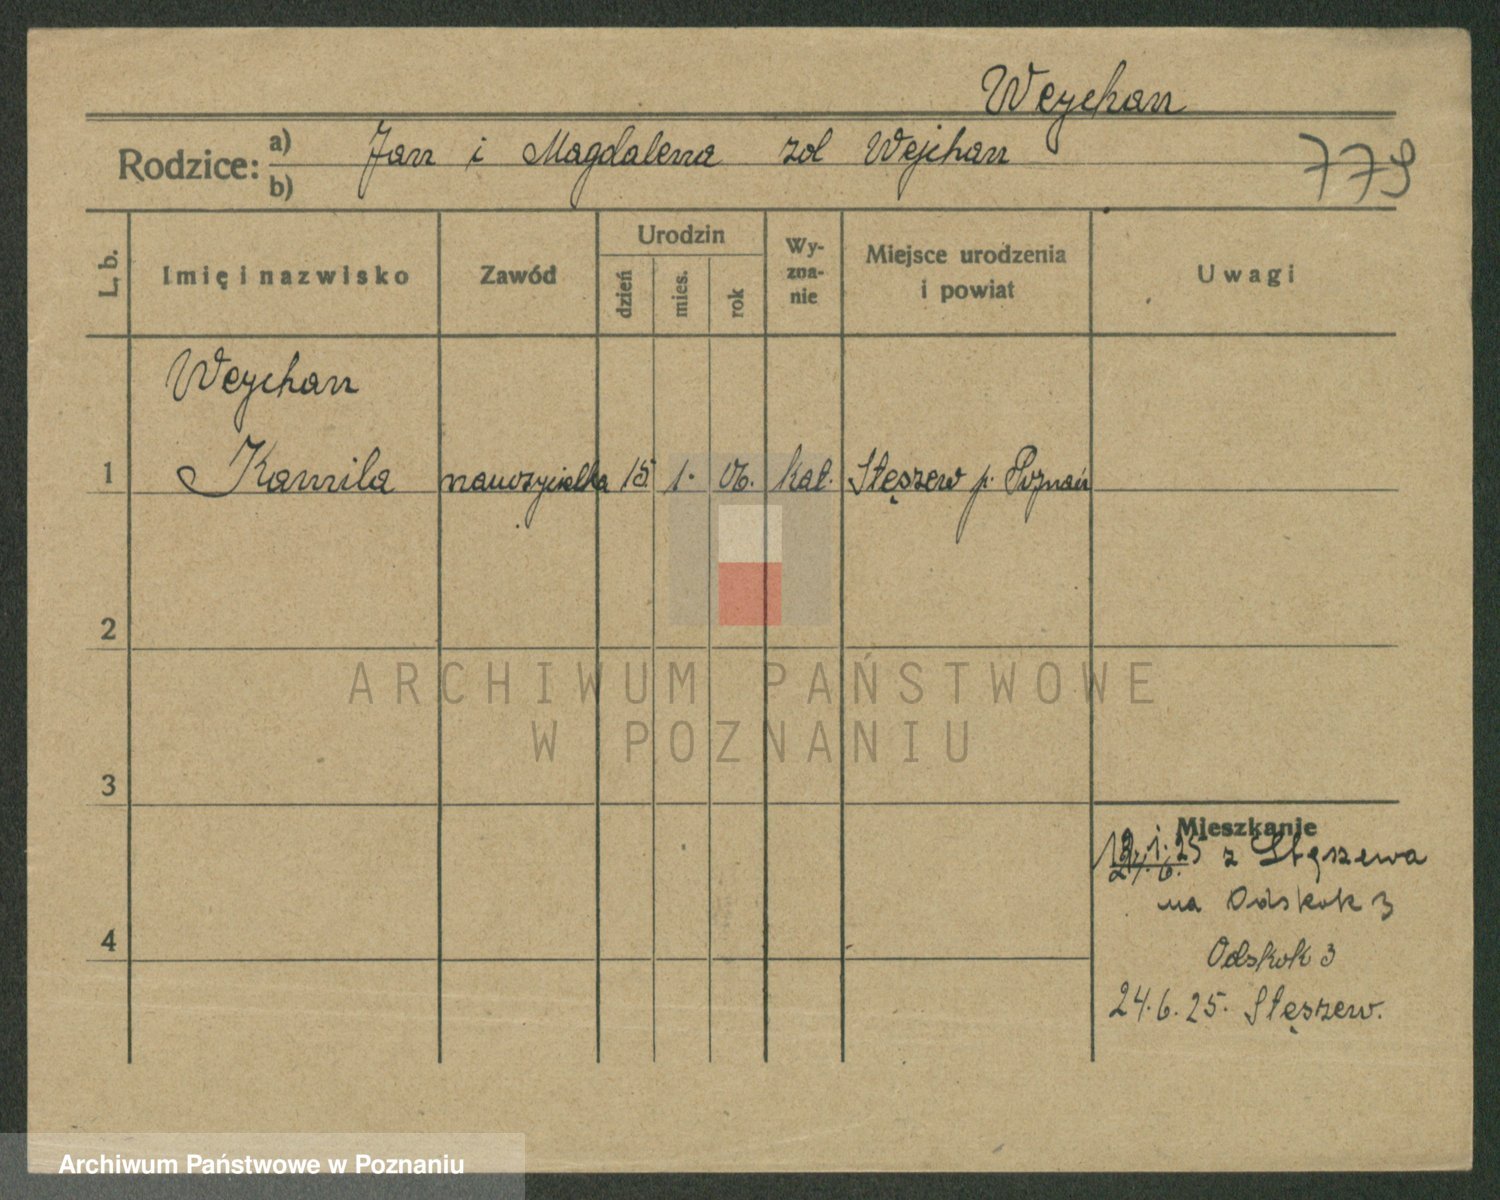 Weychan
Rodzice: a) Jan i Magdalena zol Wejchan
b)
779
L. b. Imię i nazwisko Zawód Urodzin dzień mies. rok Wy-zna-nie Miejsce urodzenia i powiat Uwagi
Weychan
1 Kamila nauczycielka 15 1. 06. kat. Stęszew p. Poznań
2
ARCHIWUM PAŃSTWOWE
W POZNANIU
3
Mieszkanie
1. 25 z Stęszewa
na Odskok 3
4
Odskok 3
24. 6. 25. Stęszew.
Archiwum Państwowe w Poznaniu